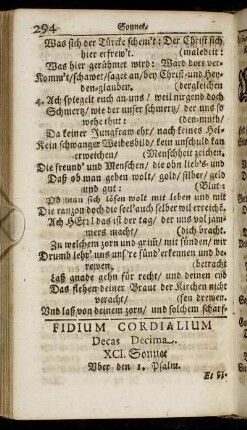 294 Sonnet.
Was sich der Türcke schemt: Der Christ sich
hier erfrew't. (maledeit:
Was hier gerühmet wird: Ward dort ver-
Komm't/schawet/saget an/bey Christ- und Hey-
den-glauben. (dergleichen
4. Ach spiegelt euch an uns/ weil nirgend doch
Schmertz/ wie der unser schmertz/ der uns so
wehe thut: (den-muth/
Da keiner Jungfraw ehr/ nach keines Hel-
Kein schwanger Weibesbild/ kein unschuld kan
erweichen/ (Menschheit zeichen.
Die freund' und Menschen/ die ohn lieb's und
Daß ob man geben wolt/ gold/ silber/ geld
und gut: (Blut:
Ob man sich lösen wolt mit leben und mit
Die ranzon doch die seel'auch selber wil erreicht.
Ach HErr! das ist der tag/ der uns vol jam-
mers macht/ (dich bracht.
Zu welchem zorn und grim/ mit sünden/ wir
Drumb lehr' uns uns're sünd'erkennen und be-
rewen. (betracht
Laß gnade gehn für recht/ und deinen eyd
Das flehen deiner Braut der Kirchen nicht
veracht/ (sen drewen.
Und laß von deinem zorn/ und solchem scharf-
FIDIUM CORDIALIUM
Decas Decima.
XCI. Sonnet
Vber den 1. Psalm.